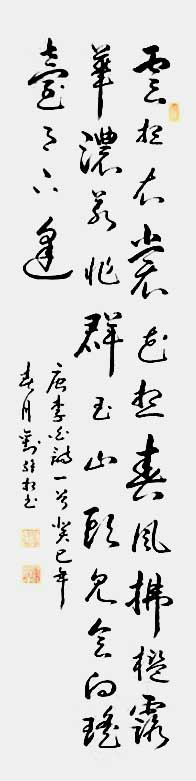 雲想衣裳花想春風拂檻露
華濃若非群玉山頭見會向瑤
臺月下逢
唐李白詩一首癸巳年
春月劉